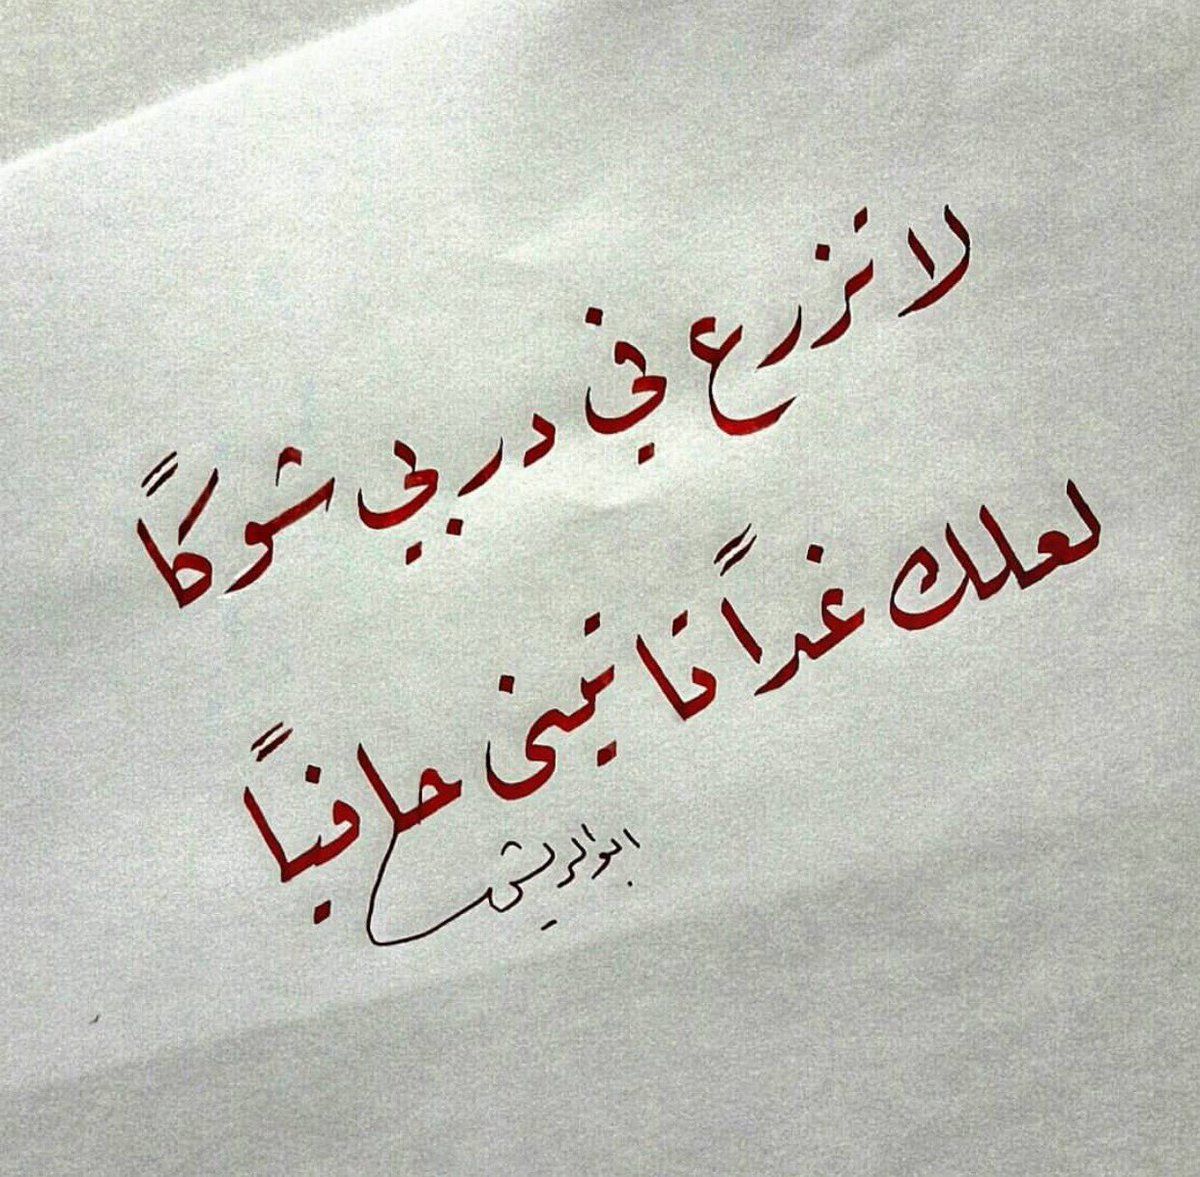 لا تزرع في دربي شوكاً
لعلك غداً تاتيني حافياً
ابو الريش